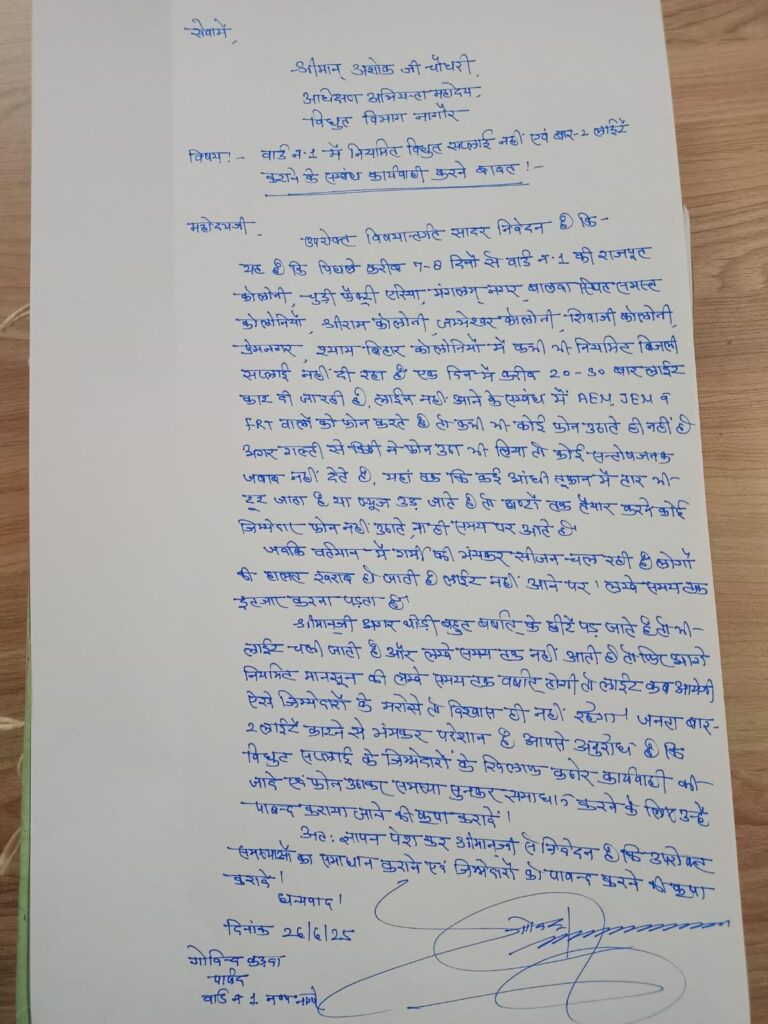 सेवामें,
श्रीमान् अशोक जी चौधरी,
अधिक्षण अभियन्ता महोदय,
विधुत विभाग नागौर
विषय:- वार्ड न.1 में नियमित विधुत सप्लाई नहीं एवं बार-2 लाईटें
काटने के सम्बंध कार्यवाही करने बाबत!-
महोदयजी,
उपरोक्त विषयान्तर्गत सादर निवेदन है कि-
यह है कि पिछले करीब 7-8 दिनों से वार्ड न.1 की राजपूत
कोलोनी, चुड़ी फैक्ट्री एरिया, मंगलम् नगर, बालवा स्थित समस्त
कोलोनियाँ, श्रीराम कोलोनी, जम्भेश्वर कोलोनी, शिवाजी कोलोनी,
प्रेमनगर, श्याम बिहार कोलोनियों में कभी भी नियमित बिजली
सप्लाई नहीं दी रहा है एक दिन में करीब 20-30 बार लाईट
काट दी जा रही है, लाईन नहीं आने के सम्बंध में AEN, JEN व
FRT वालों को फोन करते है तो कभी भी कोई फोन उठाते ही नहीं है
अगर गल्ती से किसी ने फोन उठा भी लिया तो कोई सन्तोषजनक
जवाब नहीं देते है, यहां तक कि कई आंधी तूफान में तार भी-
टूट जाता है या फ्यूज उड़ जाते है तो घण्टों तक तैयार करने कोई
जिम्मेदार फोन नहीं उठाते, ना ही समय पर आते है।
जबकि वर्तमान में गर्मी की भंयकर सीजन चल रही है लोगों
की हालत खराब हो जाती है लाईट नहीं आने पर। लम्बे समय तक
इन्तजार करना पड़ता है।
श्रीमान्‌जी अगर थोड़ी बहुत बर्षात के छीटें पड़ जाते है तो भी-
लाईट चली जाती है और लम्बे समय तक नहीं आती है तो फिर आगे
नियमित मानसून की लम्बे समय तक वर्षात होगी तो लाईट कब आयेगी
ऐसे जिम्मेदारों के भरोसे तो विश्वास ही नहीं रहेगा। जनता बार-
2 लाईटें काटने से भंयकर परेशान है आपसे अनुरोध है कि
विधुत सप्लाई के जिम्मेदारों के खिलाफ कठोर कार्यवाही की
जावे एवं फोन उठाकर समस्या सुनकर समाधान करने के लिए उन्हें
पाबन्द कराया जाने की कृपा करावें।
अत: ज्ञापन पेश कर श्रीमान्‌जी से निवेदन है कि उपरोक्त
समस्याओं का समाधान कराने एवं जिम्मेदारों को पाबन्द करने की कृपा
करावें!
धन्यवाद!
दिनांक 26/6/25
गोविन्द कड़वा
पार्षद
वार्ड न 1